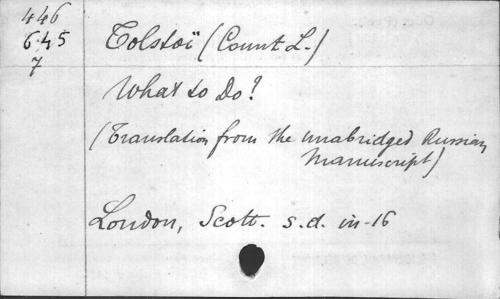 446
645
7
Tolstoï (Count L.)
What to Do?
(Translation from the unabridged Russian
Manuscript)
London, Scott. s.d. in-16